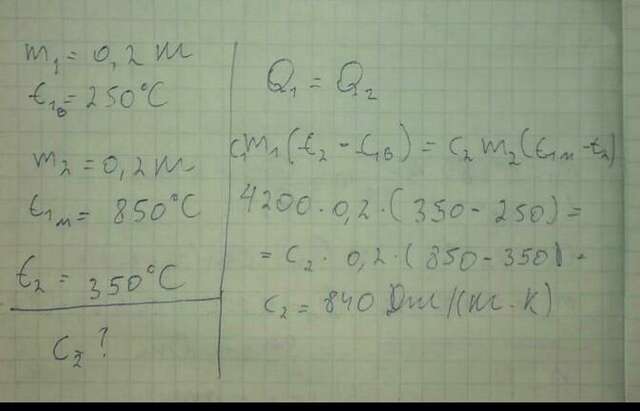 m₁ = 0,2 т
t₁в = 250°C
m₂ = 0,2 т
t₁м = 850°C
t₂ = 350°C
C₂ ?
Q₁ = Q₂
C₁m₁(t₂ - t₁в) = C₂ m₂(t₁м - t₂)
4200 · 0,2 · (350 - 250) =
= C₂ · 0,2 · (850 - 350) ·
C₂ = 840 Дж/(кг · К)